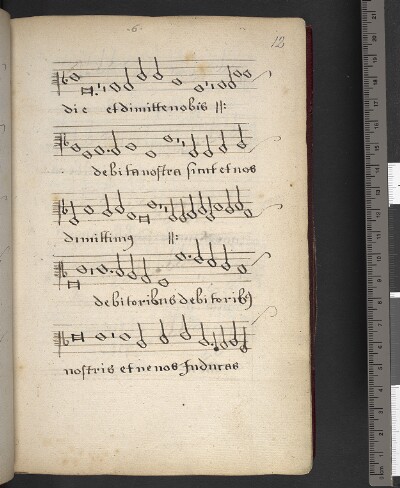 -6-
12
die et dimitte nobis ||:
debita nostra sicut et nos
dimittimus ||:
debitoribus debitoribus
nostris et ne nos Inducas